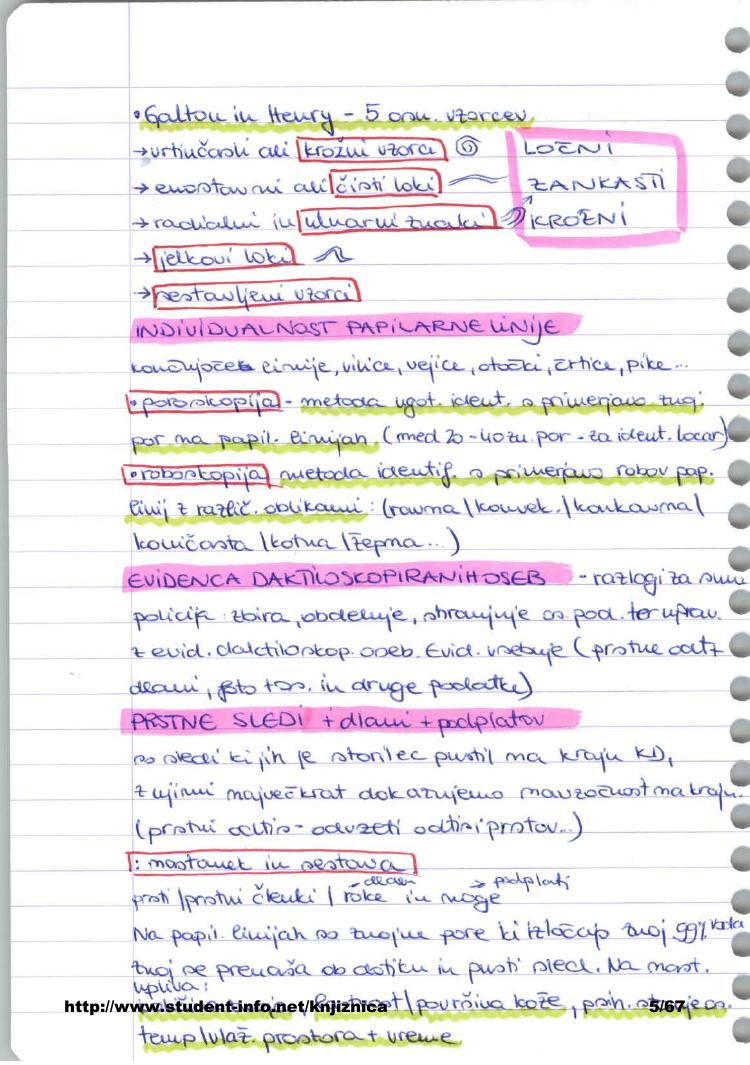 • Galton in Henry - 5 osn. vzorcev
→ vrtinčasti ali krožni vzorci
LOČNI
→ enostavni ali čisti loki
ZANKASTI
→ radialni in ulnarni znaki
KROŽNI
→ jelkovi loki
→ sestavljeni vzorci
INDIVIDUALNOST PAPILARNE LINIJE
končujoče linije, vilice, vejice, otočki, črtice, pike...
• poroskopija - metoda ugot. ident. s primerjavo znoj.
por na papil. linijah (med 20-40 zn. por - za ident. locar)
• roboskopija metoda identif. s primerjavo robov pap.
linij z različ. oblikami: (ravna/konvek./konkavna/
koničasta/kotna/žepna...)
EVIDENCA DAKTILOSKOPIRANIH OSEB - razlogi za sum
policija: zbira, obdeluje, shranjuje os. pod. ter uprav.
z evid. daktiloskop. oseb. Evid. vsebuje (prstne odtz
dlani, foto + os. in druge podatke)
PRSTNE SLEDI + dlani + podplatov
so sledi ki jih je storilec pustil na kraju KD,
z njimi največkrat dokazujemo navzočnost na kraju..
(prstni odtis - odvzeti odtisi prstov...)
: nastanek in sestava
dlan → podplati
prsti/prstni členki/roke in noge
Na papil. linijah so znojne pore ki izločajo znoj 99% voda
znoj se prenaša ob dotiku in pusti sled. Na nast.
vpliva:
/površina kože, psih. stanje os.
http://www.student-info.net/knjiznica 5/67
temp/vlaž. prostora + vreme